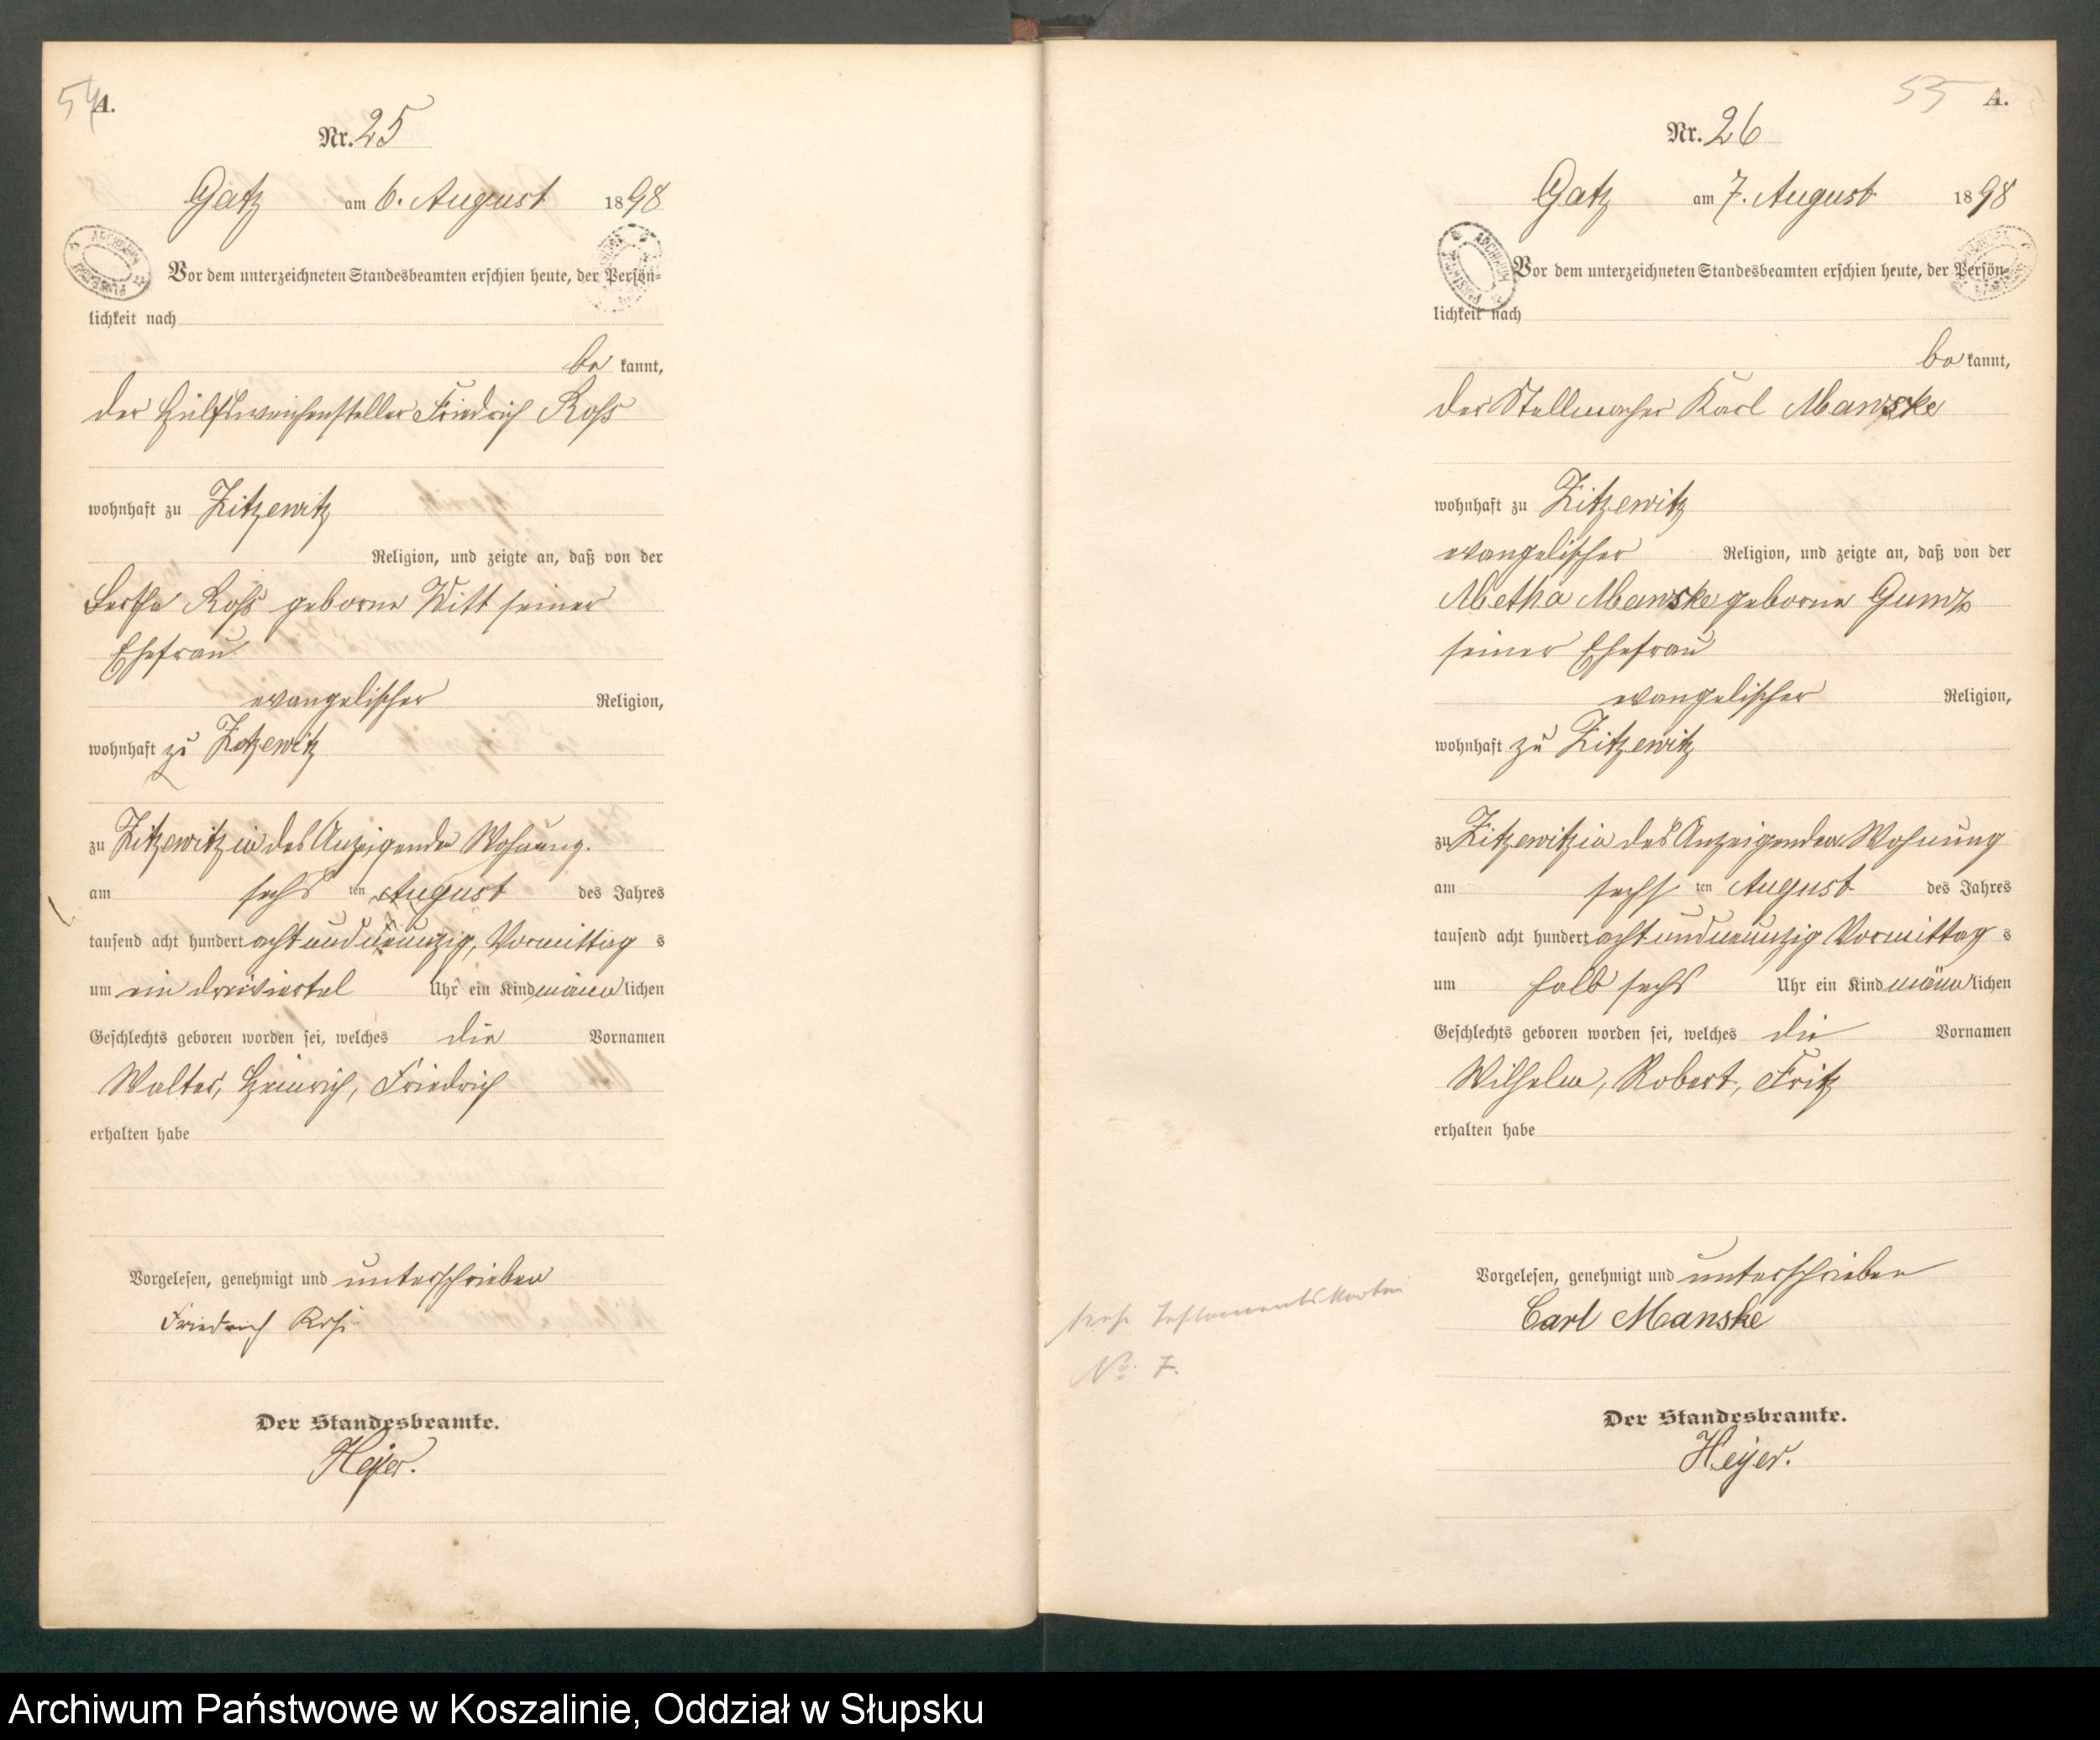 54
A.
Nr. 25
Gatz am 6. August 1898
Vor dem unterzeichneten Standesbeamten erschien heute, der Persön=
lichkeit nach
be kannt,
der Hülfsweichensteller Friedrich Roß
wohnhaft zu Zitzewitz
Religion, und zeigte an, daß von der
Bertha Roß geborne Witt seiner
Ehefrau
evangelischer Religion,
wohnhaft zu Zitzewitz
zu Zitzewitz in des Anzeigenden Wohnung.
am sechs ten August des Jahres
tausend acht hundert acht und neunzig, Vormittag s
um ein dreiviertel Uhr ein Kind männ lichen
Geschlechts geboren worden sei, welches die Vornamen
Walter, Heinrich, Friedrich
erhalten habe
Vorgelesen, genehmigt und unterschrieben
Friedrich Roß
Der Standesbeamte.
Heyer.
55
A.
Nr. 26
Gatz am 7. August 1898
Vor dem unterzeichneten Standesbeamten erschien heute, der Persön=
lichkeit nach
be kannt,
der Stellmacher Karl Manske
wohnhaft zu Zitzewitz
evangelischer Religion, und zeigte an, daß von der
Metha Manske geborne Gumz
seiner Ehefrau
evangelischer Religion,
wohnhaft zu Zitzewitz
zu Zitzewitz in des Anzeigenden Wohnung
am sechs ten August des Jahres
tausend acht hundert acht und neunzig Vormittag s
um halb sechs Uhr ein Kind männ lichen
Geschlechts geboren worden sei, welches die Vornamen
Wilhelm, Robert, Fritz
erhalten habe
Vorgelesen, genehmigt und unterschrieben
Carl Manske
Der Standesbeamte.
Heyer.
siehe Testamentskartei
No: 7.
Archiwum Państwowe w Koszalinie, Oddział w Słupsku